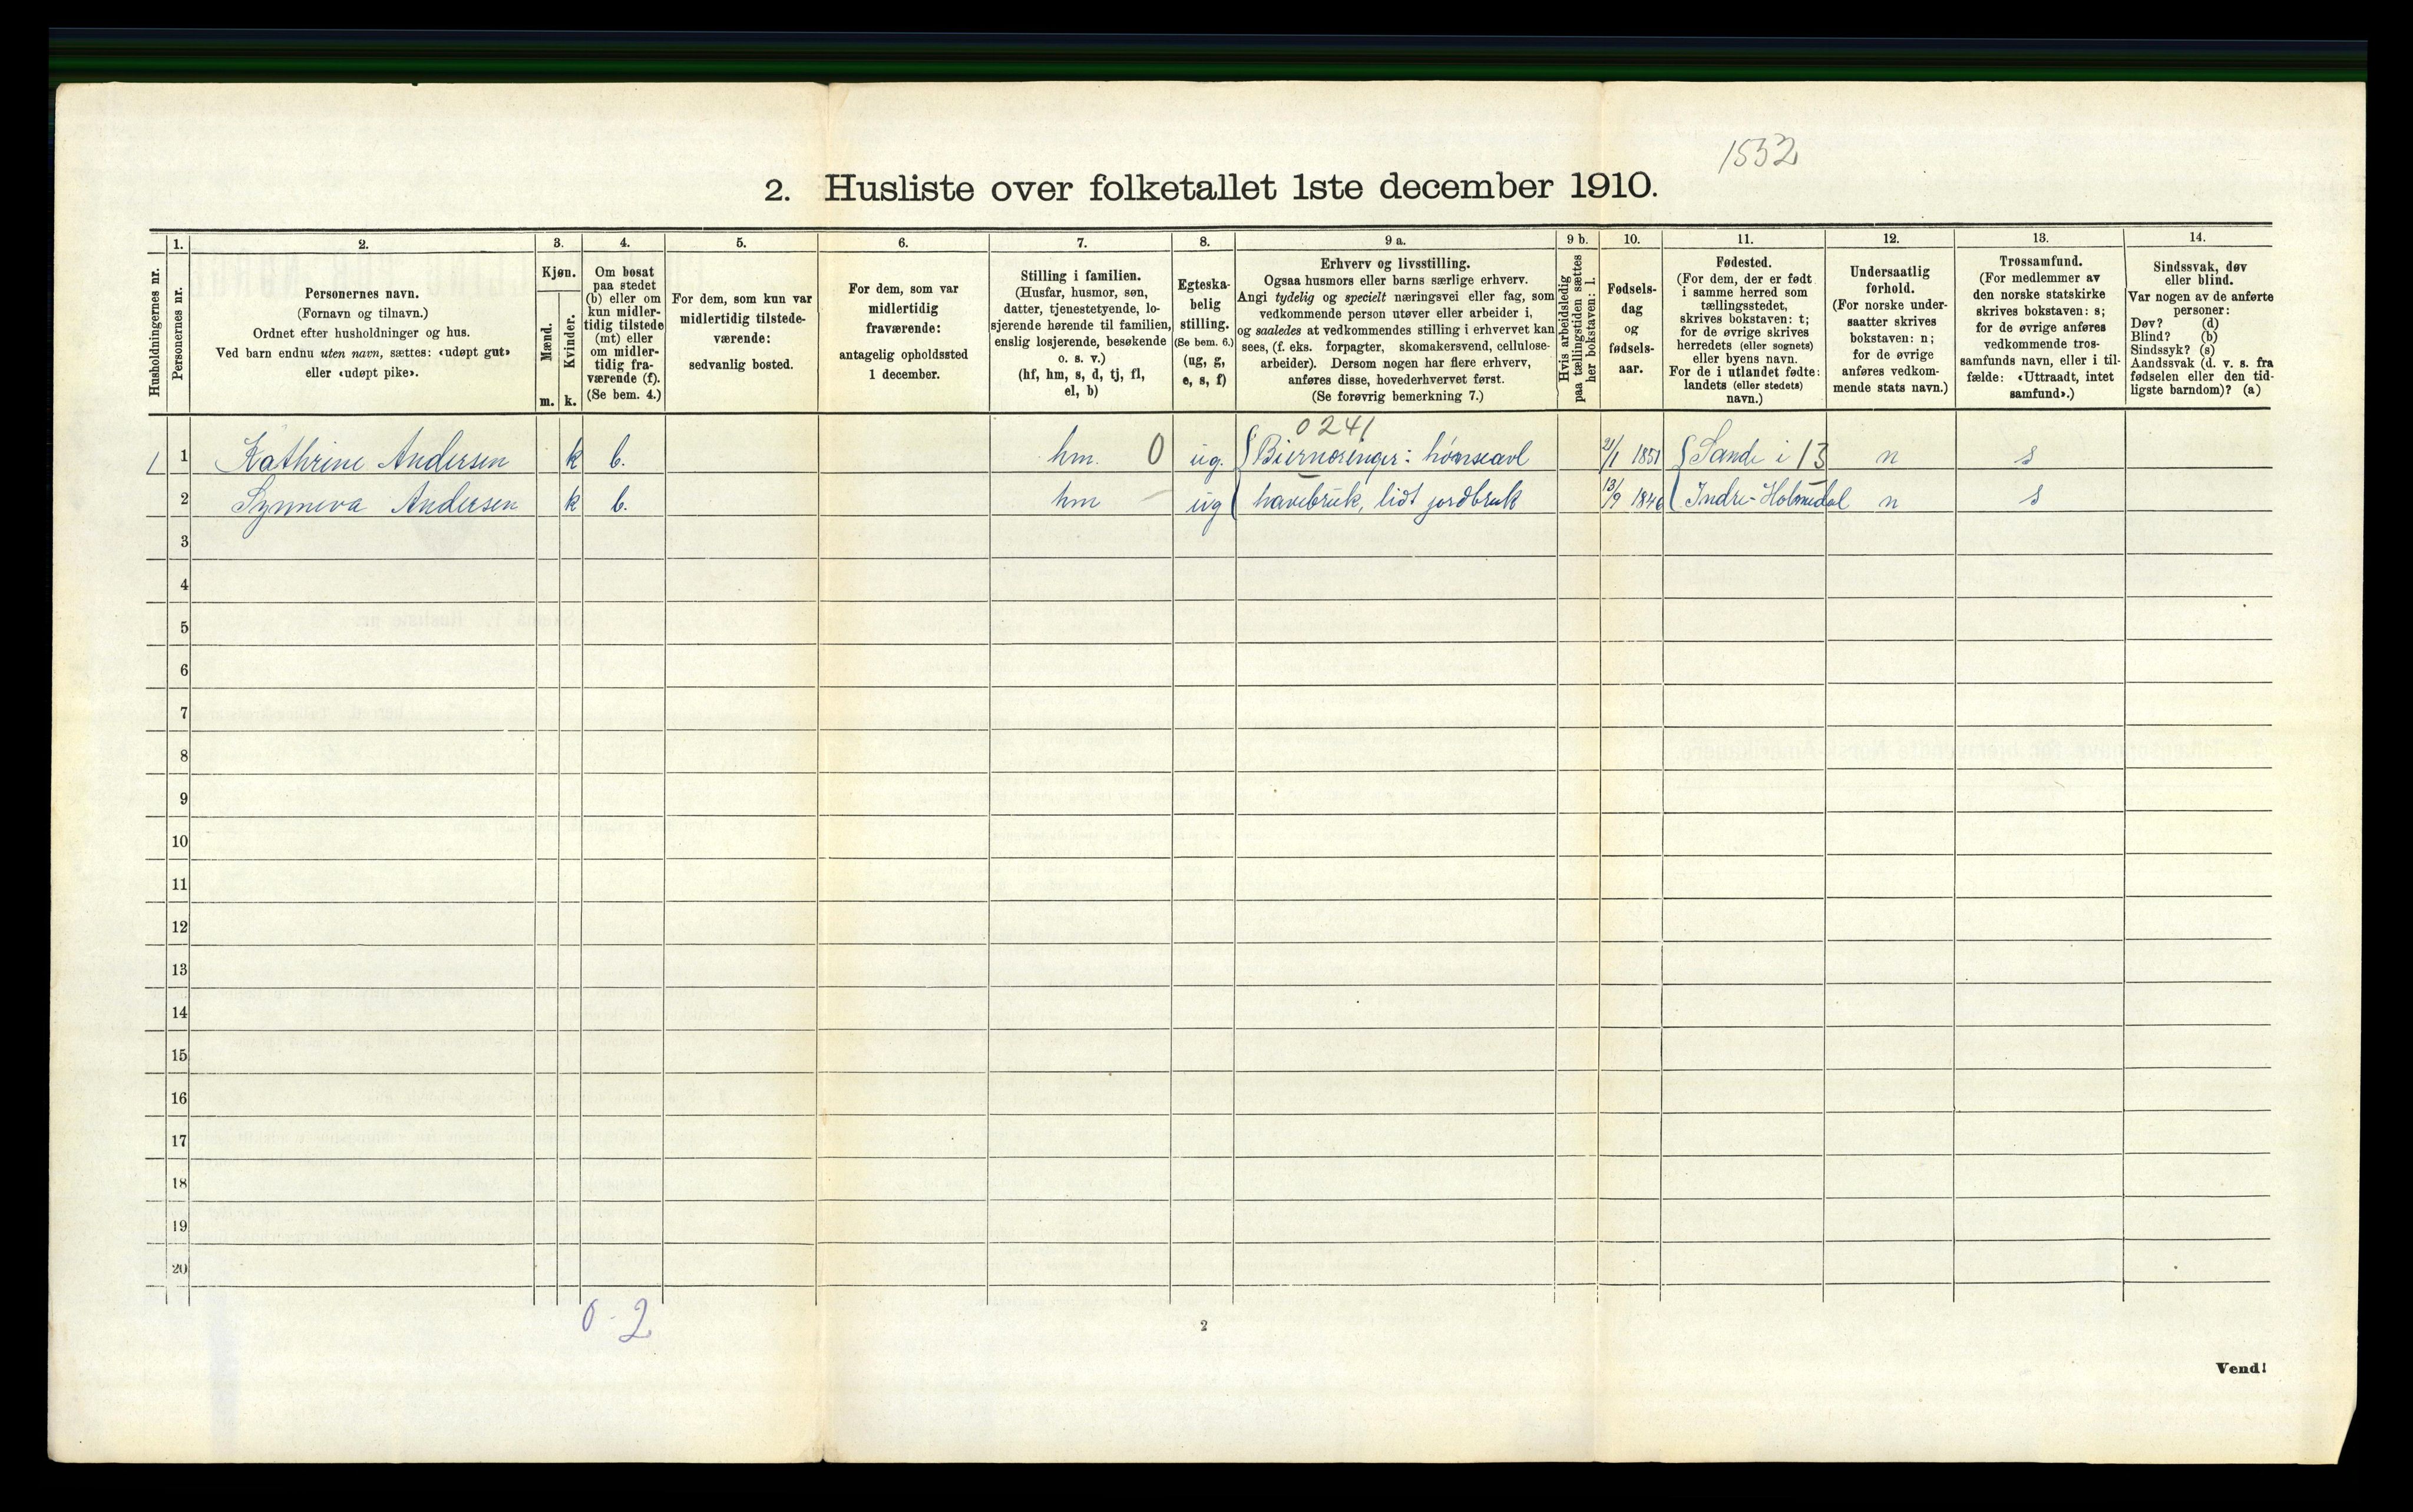 1532
2. Husliste over folketallet 1ste december 1910.
Husholdningernes nr.
1.
Personernes nr.
2.
Personernes navn.
(Fornavn og tilnavn.)
Ordnet efter husholdninger og hus.
Ved barn endnu uten navn, sættes: «udøpt gut»
eller «udøpt pike».
3.
Kjøn.
Mænd.
Kvinder.
m. k.
4.
Om bosat
paa stedet
(b) eller om
kun midler-
tidig tilstede
(mt) eller
om midler-
tidig fra-
værende (f).
(Se bem. 4.)
5.
For dem, som kun var
midlertidig tilstede-
værende:
sedvanlig bosted.
6.
For dem, som var
midlertidig
fraværende:
antagelig opholdssted
1 december.
7.
Stilling i familien.
(Husfar, husmor, søn,
datter, tjenestetyende, lo-
sjerende hørende til familien,
enslig losjerende, besøkende
o. s. v.)
(hf, hm, s, d, tj, fl,
el, b)
8.
Egteska-
belig
stilling.
(Se bem. 6.)
(ug, g,
e, s, f)
9 a.
Erhverv og livsstilling.
Ogsaa husmors eller barns særlige erhverv.
Angi tydelig og specielt næringsvei eller fag, som
vedkommende person utøver eller arbeider i,
og saaledes at vedkommendes stilling i erhvervet kan
sees, (f. eks. forpagter, skomakersvend, cellulose-
arbeider). Dersom nogen har flere erhverv,
anføres disse, hovederhvervet først.
(Se forøvrig bemerkning 7.)
9 b.
Hvis arbeidsledig
paa tællingstiden sættes
her bokstaven: l.
10.
Fødsels-
dag
og
fødsels-
aar.
11.
Fødested.
(For dem, der er født
i samme herred som
tællingsstedet,
skrives bokstaven: t;
for de øvrige skrives
herredets (eller sognets)
eller byens navn.
For de i utlandet fødte:
landets (eller stedets)
navn.)
12.
Undersaatlig
forhold.
(For norske under-
saatter skrives
bokstaven: n;
for de øvrige
anføres vedkom-
mende stats navn.)
13.
Trossamfund.
(For medlemmer av
den norske statskirke
skrives bokstaven: s;
for de øvrige anføres
vedkommende tros-
samfunds navn, eller i til-
fælde: «Uttraadt, intet
samfund».)
14.
Sindssvak, døv
eller blind.
Var nogen av de anførte
personer:
Døv? (d)
Blind? (b)
Sindssyk? (s)
Aandssvak (d. v. s. fra
fødselen eller den tid-
ligste barndom)? (a)
0241
1 1 Kathrine Andersen k b. hm. 0 ug. Biernæringer: hønseavl 21/1 1851 Sande i 13 n s
2 Synneva Andersen k b. hm ug havebruk, lidt jordbruk 13/9 1846 Indre-Holmedal n s
3
4
5
6
7
8
9
10
11
12
13
14
15
16
17
18
19
20
0 - 2
2
Vend!